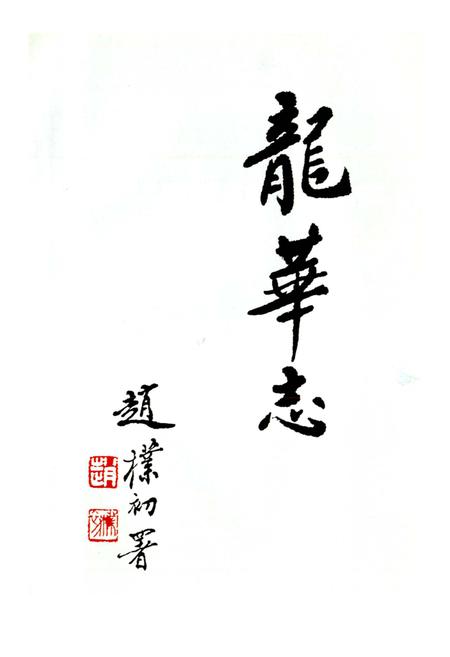 龍華志
趙樸初署
趙
樸初